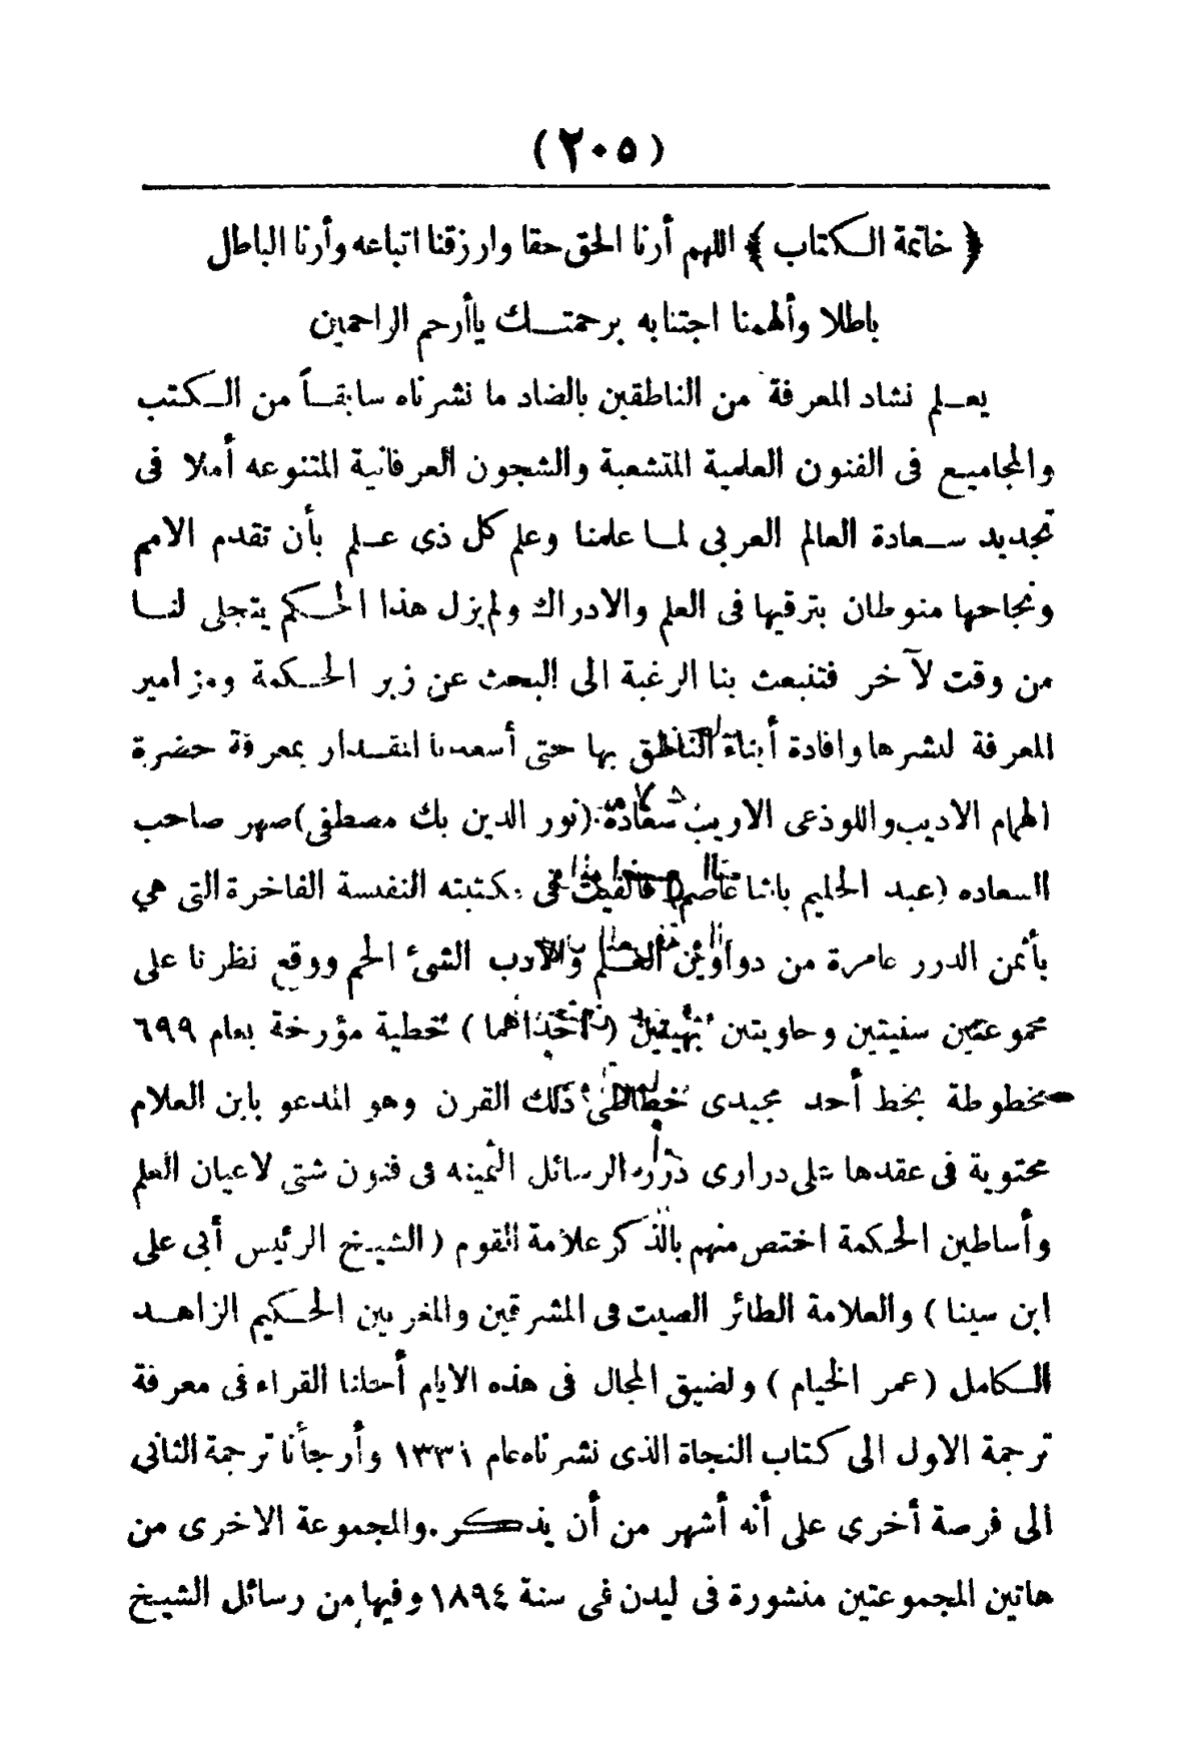 (٢٠٥)
﴿ خاتمة الكتاب ﴾ اللهم أرنا الحق حقا وارزقنا اتباعه وأرنا الباطل
باطلا وألهمنا اجتنابه برحمتك ياأرحم الراحمين
يعلم نشاد المعرفة من الناطقين بالضاد ما نشرناه سابقاً من الكتب
والمجاميع فى الفنون العلمية المتشعبة والشجون العرفانية المتنوعه أملا فى
تجديد سعادة العالم العربي لما علمنا وعلم كل ذى علم بأن تقدم الامم
ونجاحها منوطان بترقيها فى العلم والادراك ولم يزل هذا الحكم يتجلى لنا
من وقت لآخر فتنبعث بنا الرغبة الى البحث عن زبر الحكمة ومزامير
المعرفة لنشرها وافادة أبناء بها حتى أسعدنا المقدار بمعرفة حضرة
الهمام الاديب واللوذعى الاريب سعادة (نور الدين بك مصطفى) صهر صاحب
السعاده (عبد الحليم باشا عاصم) فالفيت فى مكتبته النفيسة الفاخرة التى هي
بأثمن الدرر عامرة من دواوين العلم والادب الشئ الجم ووقع نظرنا على
مجموعتين سنيتين وحاويتين (احداهما) خطية مؤرخة بعام ٦٩٩
مخطوطة بخط أحد مجيدى خطاطى ذلك القرن وهو المدعو بابن العلام
محتوية فى عقدها على درارى درر الرسائل الثمينه فى فنون شتى لاعيان العلم
وأساطين الحكمة اختص منهم بالذكر علامة القوم (الشيخ الرئيس أبى على
ابن سينا) والعلامة الطائر الصيت فى المشرقين والمغربين الحكيم الزاهد
الكامل (عمر الخيام) ولضيق المجال فى هذه الايام أحلنا القراء فى معرفة
ترجمة الاول الى كتاب النجاة الذى نشرناه عام ١٣٣١ وأرجأنا ترجمة الثانى
الى فرصة أخرى على أنه أشهر من أن يذكر. والمجموعة الاخرى من
هاتين المجموعتين منشورة فى ليدن فى سنة ١٨٩٤ وفيها من رسائل الشيخ